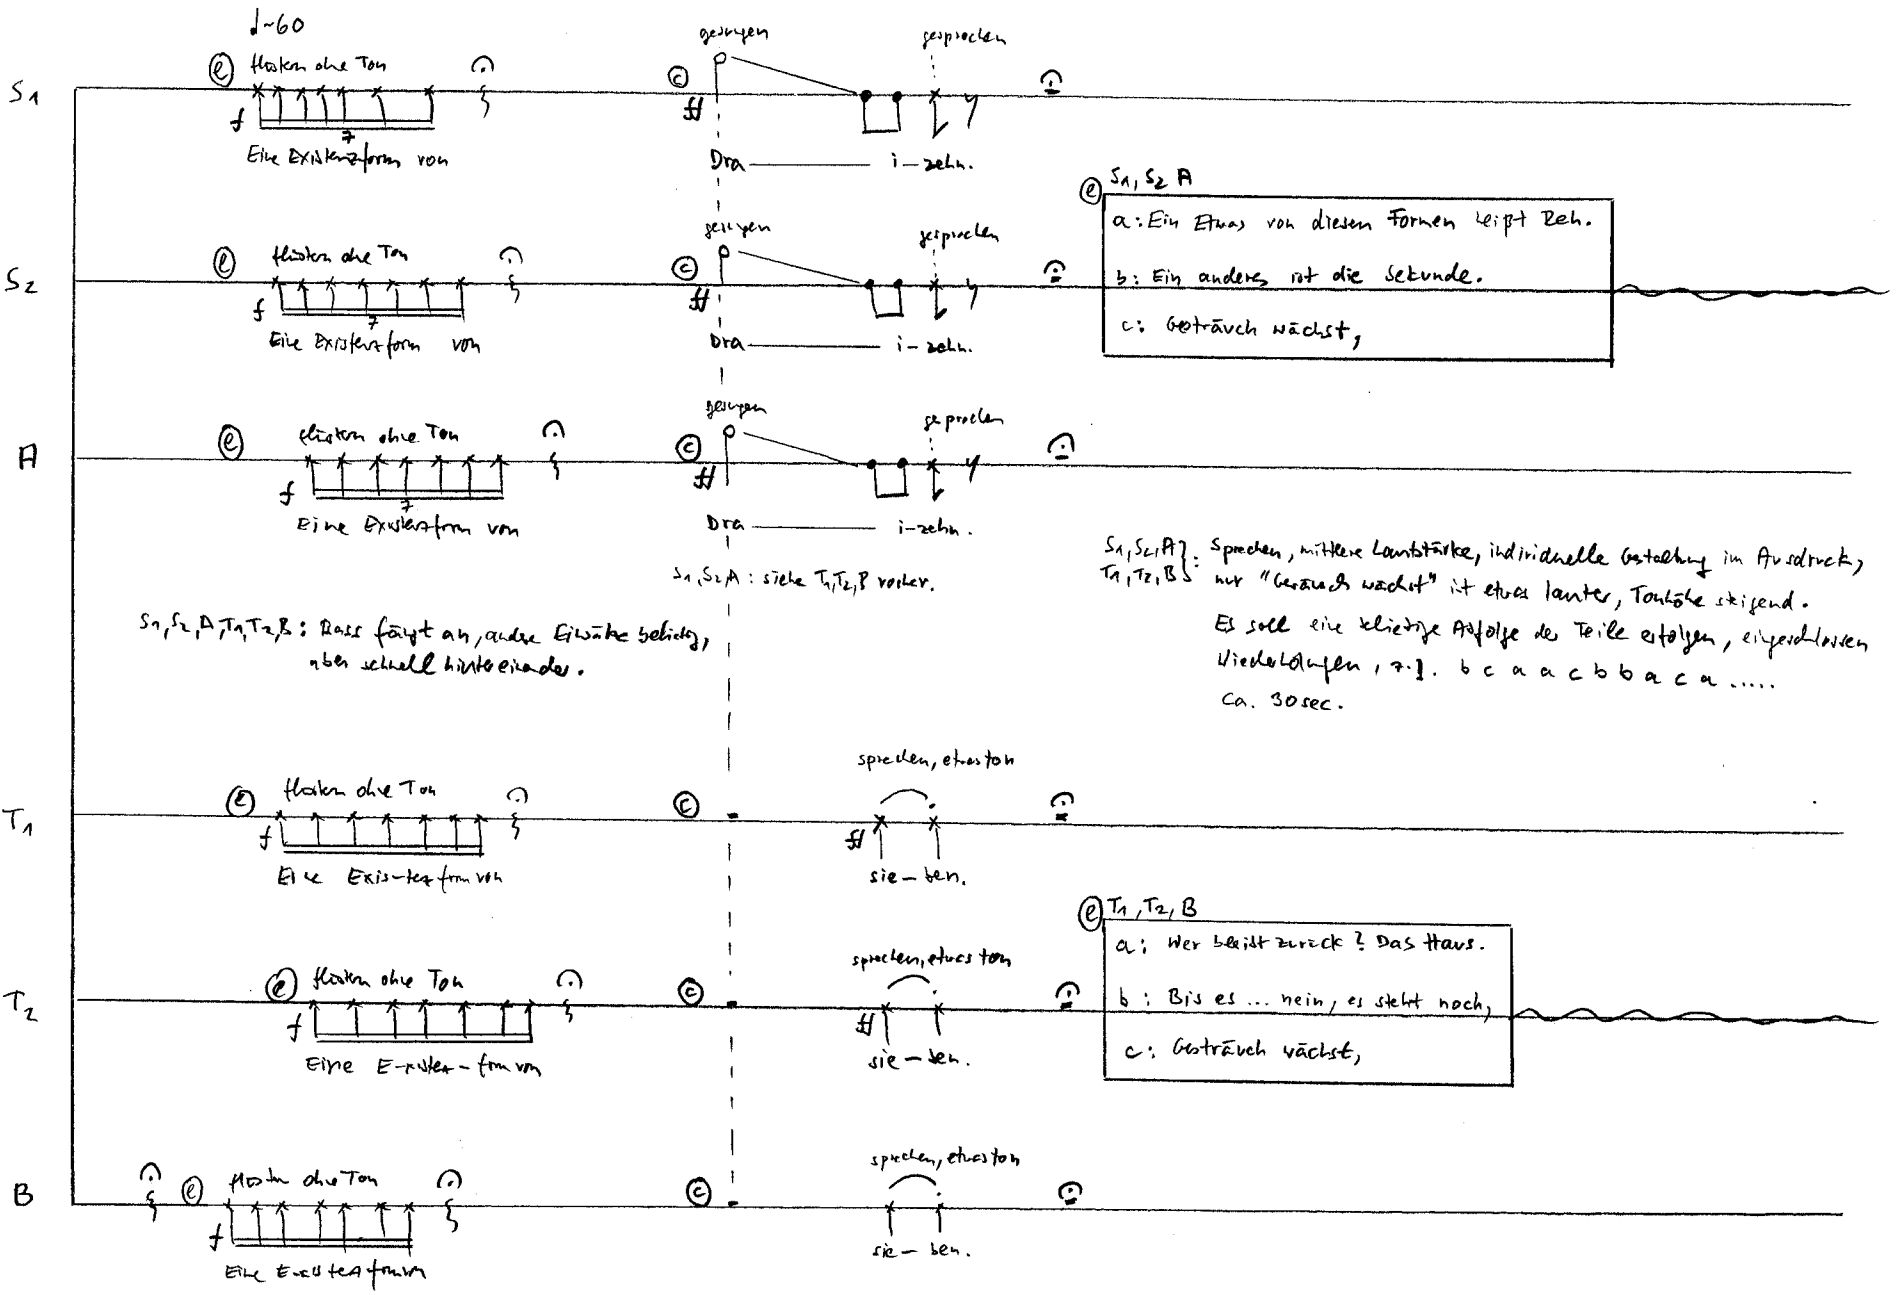 ♩~60
S1
ⓔ flüstern ohne Ton
f
7
Eine Existenzform von
gesungen
gesprochen
ⓒ
ff
Dra i-zehn.
S2
ⓔ flüstern ohne Ton
f
7
Eine Existenzform von
gesungen
gesprochen
ⓒ
ff
Dra i-zehn.
ⓔ S1, S2 A
a: Ein Etwas von diesen Formen heißt Zeh.
b: Ein anderes ist die Sekunde.
c: Gesträuch wächst,
A
ⓔ flüstern ohne Ton
f
7
Eine Existenzform von
gesungen
gesprochen
ⓒ
ff
Dra i-zehn.
S1, S2, A: siehe T1, T2, B vorher.
S1, S2, A, T1, T2, B: Bass fängt an, andre Einsätze beliebig,
aber schnell hintereinander.
S1, S2, A } : Sprechen, mittlere Lautstärke, individuelle Gestaltung im Ausdruck,
T1, T2, B nur "Gesträuch wächst" ist etwas lauter, Tonhöhe steigend.
Es soll eine beliebige Abfolge der Teile erfolgen, eingeschlossen
Wiederholungen, z.B. b c a a c b b a c a .....
ca. 30 sec.
T1
ⓔ flüstern ohne Ton
f
Eine Exis-tenzform von
ⓒ
sprechen, etwas Ton
ff
sie-ben.
T2
ⓔ flüstern ohne Ton
f
Eine E-xisten-form von
ⓒ
sprechen, etwas Ton
ff
sie-ben.
ⓔ T1, T2, B
a: Wer bleibt zurück? Das Haus.
b: Bis es ... nein, es steht noch,
c: Gesträuch wächst,
B
ⓔ flüstern ohne Ton
f
Eine E-xistenzform von
ⓒ
sprechen, etwas Ton
sie-ben.